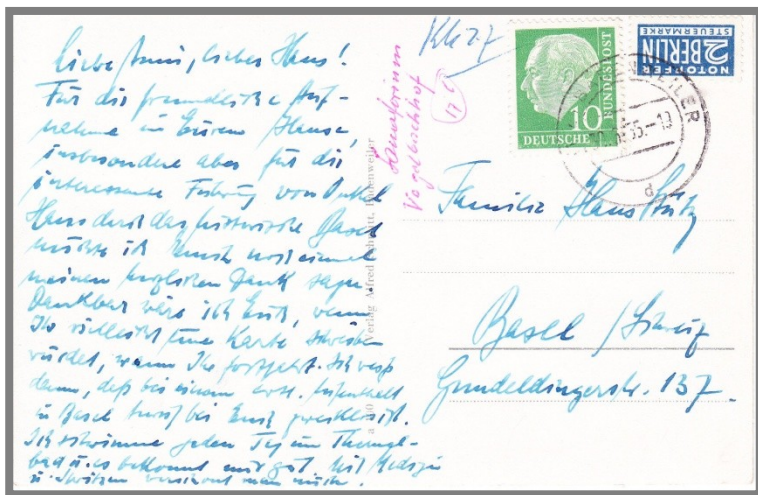 Liebe Anni, lieber Hans!
Für die freundliche Auf-
nahme in Eurem Hause,
insbesondere aber für die
interessante Führung von Onkel
Hans durch das historische Basel
möchte ich Euch noch einmal
meinen herzlichen Dank sagen.
Dankbar wäre ich Euch, wenn
Ihr vielleicht eine Karte schreiben
würdet, wann Ihr fortfahrt. Ich weiß
dann, daß bei einem Aufenthalt
in Basel bei Euch zwecklos ist.
Ich schwimme jeden Tag im Thermal-
bad u. es bekommt mir gut. Mit Medizin
u. Spritzen verschont man mich.
Sanatorium
Vogelbachhof
Verlag Alfred
Badenweiler
10
DEUTSCHE BUNDESPOST
NOTOPFER
2 BERLIN
STEUERMARKE
55.-1
d
Familie Hans
Basel / Schweiz
Gundeldingerstr. 137.